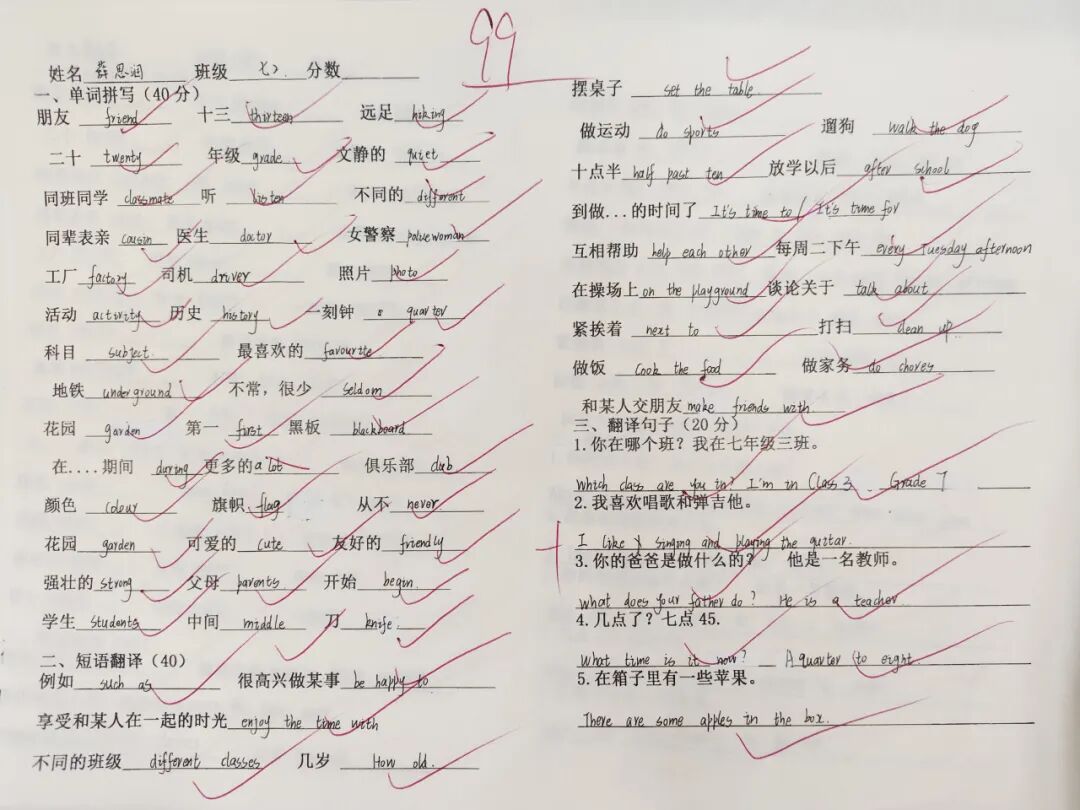 99
姓名 薛思涵 班级 七). 分数
一、单词拼写(40分)
朋友 friend 十三 thirteen 远足 hiking
二十 twenty 年级 grade 文静的 quiet
同班同学 classmate 听 listen 不同的 different
同辈表亲 cousin 医生 doctor 女警察 policewoman
工厂 factory 司机 driver 照片 photo
活动 activity 历史 history 一刻钟 a quarter
科目 subject 最喜欢的 favourite
地铁 underground 不常,很少 seldom
花园 garden 第一 first 黑板 blackboard
在....期间 during 更多的 a lot 俱乐部 club
颜色 colour 旗帜 flag 从不 never
花园 garden 可爱的 cute 友好的 friendly
强壮的 strong 父母 parents 开始 begin
学生 students 中间 middle 刀 knife
二、短语翻译(40)
例如 such as 很高兴做某事 be happy to
享受和某人在一起的时光 enjoy the time with
不同的班级 different classes 几岁 How old
摆桌子 set the table
做运动 do sports 遛狗 walk the dog
十点半 half past ten 放学以后 after school
到做...的时间了 It's time to / It's time for
互相帮助 help each other 每周二下午 every Tuesday afternoon
在操场上 on the playground 谈论关于 talk about
紧挨着 next to 打扫 clean up
做饭 cook the food 做家务 do chores
和某人交朋友 make friends with
三、翻译句子(20分)
1.你在哪个班?我在七年级三班。
which class are you in? I'm in Class 3 Grade 7
2.我喜欢唱歌和弹吉他。
I like singing and playing the guitar.
3.你的爸爸是做什么的? 他是一名教师。
what does your father do? He is a teacher.
4.几点了?七点45.
What time is it now? A quarter to eight.
5.在箱子里有一些苹果。
There are some apples in the box.